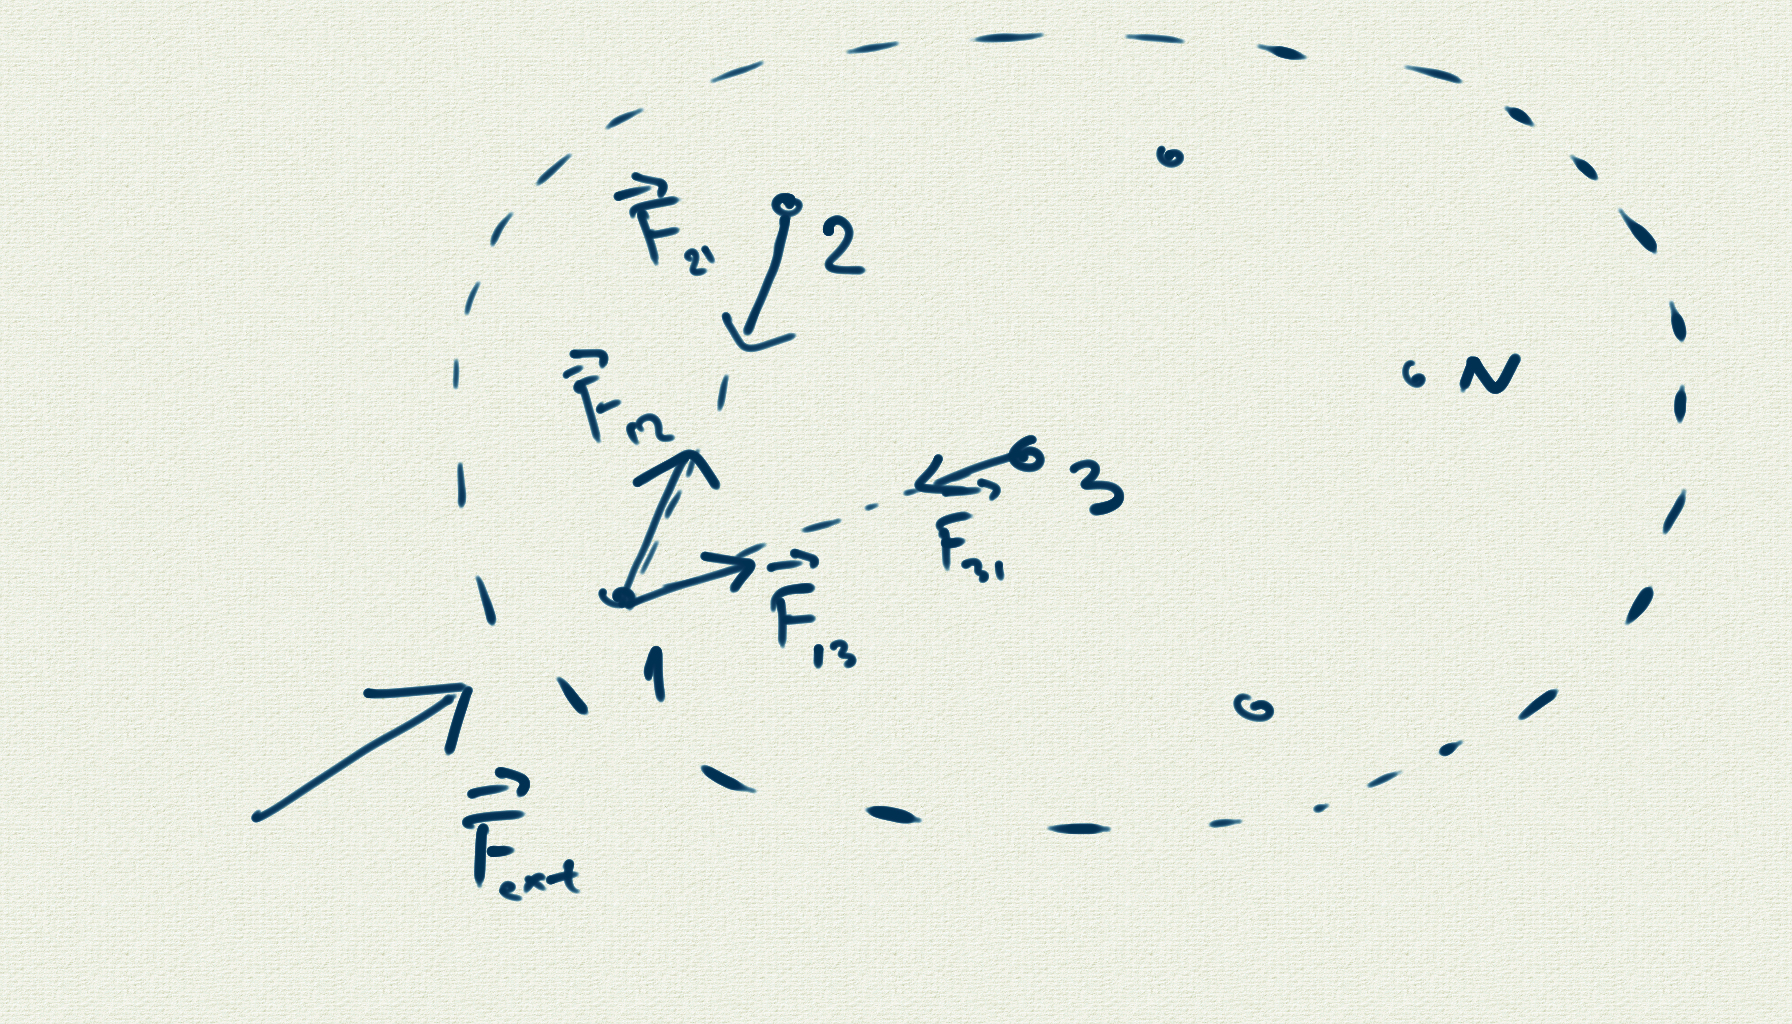 F⃗₂₁
2
F⃗₁₂
N
3
F⃗₃₁
F⃗₁₃
1
F⃗ext